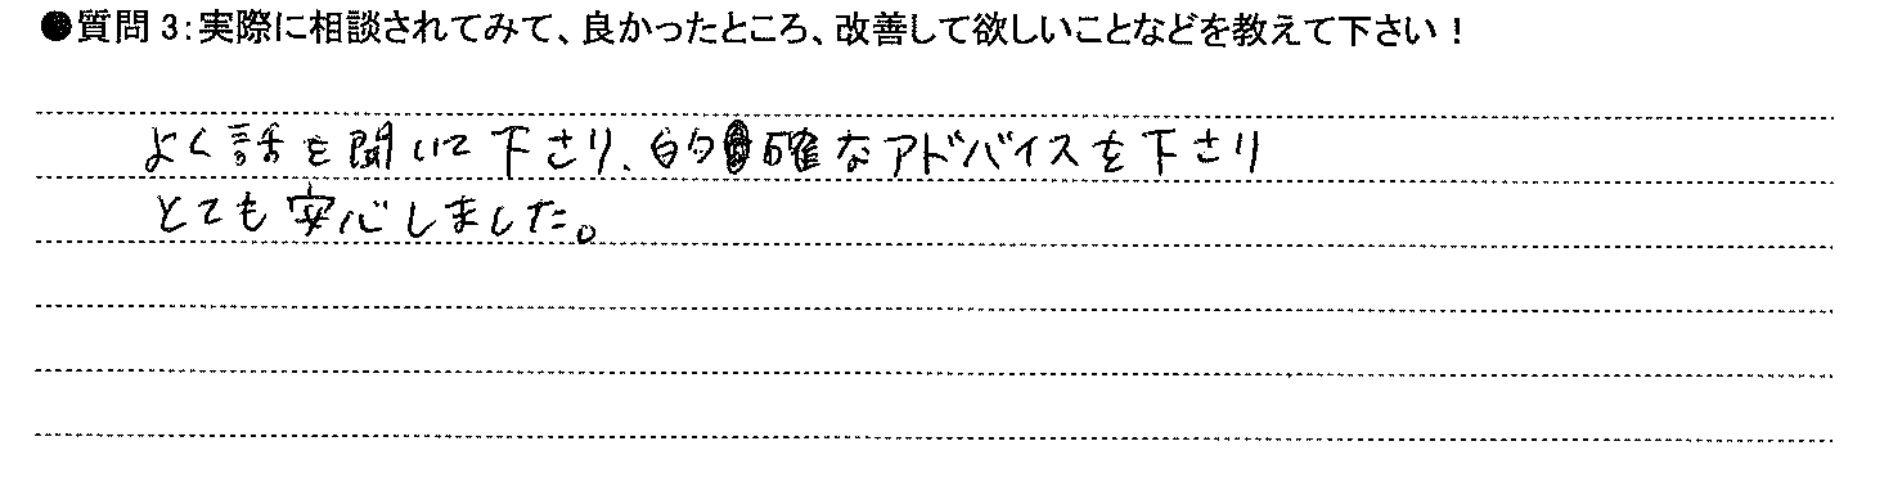 ●質問 3：実際に相談されてみて、良かったところ、改善して欲しいことなどを教えて下さい！
よく話を聞いて下さり、的確なアドバイスを下さり
とても安心しました。